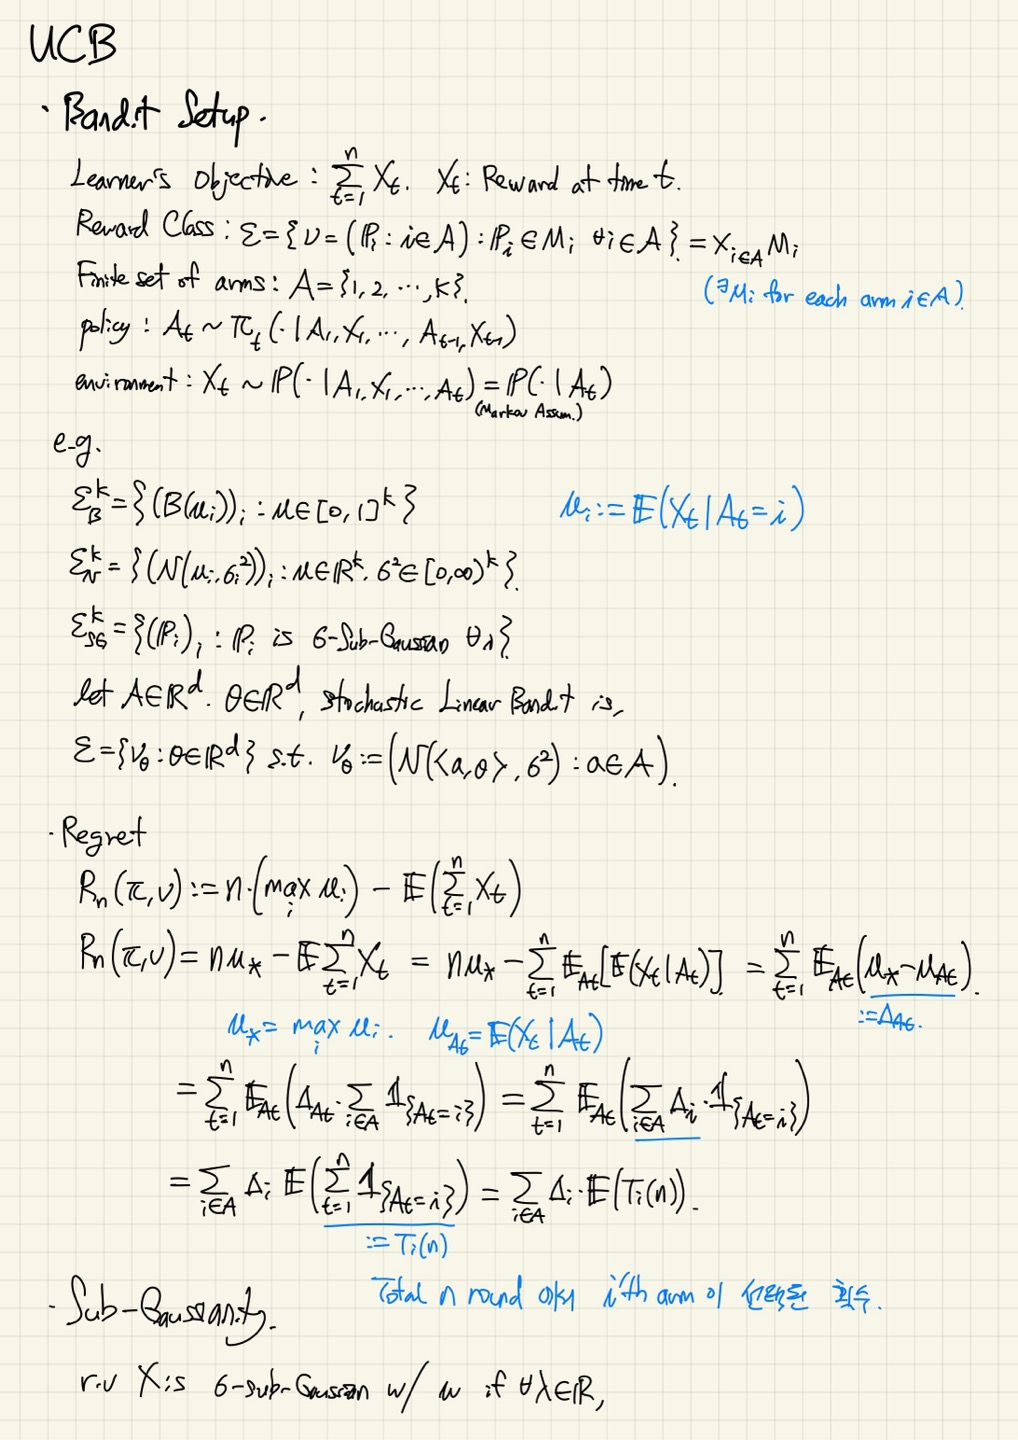 UCB
· Bandit Setup.
Learner's Objective : ∑_{t=1}^{n} X_t. X_t: Reward at time t.
Reward Class : Ɛ={ν=(ℙ_i : i∈A) : ℙ_i∈M_i ∀i∈A} = ×_{i∈A} M_i
(∃M_i for each arm i∈A)
Finite set of arms : A={1,2,⋯,k}.
policy : A_t ~ π_t(·|A_1,X_1,⋯, A_{t-1},X_{t-1})
environment : X_t ~ ℙ(·|A_1,X_1,⋯,A_t) = ℙ(·|A_t)
(Markov Assum.)
e.g.
Ɛ_B^k={(B(μ_i))_i : μ∈[0,1]^k} μ_i := 𝔼(X_t|A_t=i)
Ɛ_N^k={(N(μ_i,σ_i²))_i : μ∈ℝ^k. σ²∈[0,∞)^k}.
Ɛ_SG^k={(ℙ_i)_i : ℙ_i is σ-Sub-Gaussian ∀λ}
let A∈ℝ^d. θ∈ℝ^d, stochastic Linear Bandit is,
Ɛ={ν_θ : θ∈ℝ^d} s.t. ν_θ := (N(<a,θ>,σ²) : a∈A).
· Regret
R_n(π,ν) := n·(max_i μ_i) − 𝔼(∑_{t=1}^{n} X_t)
R_n(π,ν) = nμ_* − 𝔼∑_{t=1}^{n} X_t = nμ_* − ∑_{t=1}^{n} 𝔼_{A_t}[𝔼(X_t|A_t)] = ∑_{t=1}^{n} 𝔼_{A_t}(μ_*−μ_{A_t}).
:=Δ_{A_t}.
μ_* = max_i μ_i. μ_{A_t} = 𝔼(X_t|A_t)
= ∑_{t=1}^{n} 𝔼_{A_t}(Δ_{A_t}·∑_{i∈A} 𝟙_{{A_t=i}}) = ∑_{t=1}^{n} 𝔼_{A_t}(∑_{i∈A} Δ_i·𝟙_{{A_t=i}})
= ∑_{i∈A} Δ_i 𝔼(∑_{t=1}^{n} 𝟙_{{A_t=i}}) = ∑_{i∈A} Δ_i·𝔼(T_i(n)).
:= T_i(n)
Total n round 에서 i'th arm 이 선택된 횟수.
· Sub-Gaussianity.
r.v X is σ-sub-Gaussian w/ μ if ∀λ∈ℝ,